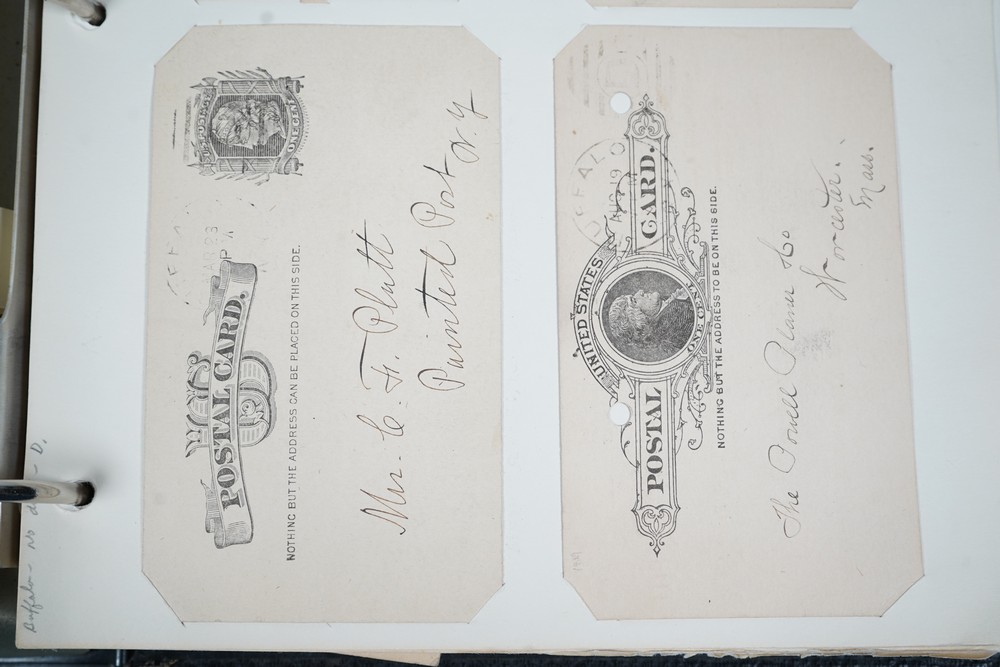 U.S. POSTAGE
ONE CENT
MAR 23
P M
POSTAL CARD.
NOTHING BUT THE ADDRESS CAN BE PLACED ON THIS SIDE.
Mr. C. F. Platt
Painted Post
N.Y.
AUG 19
UNITED STATES
POSTAL CARD.
ONE CENT
NOTHING BUT THE ADDRESS TO BE ON THIS SIDE.
The Powell Planer Co
Worcester.
Mass.
Buffalo